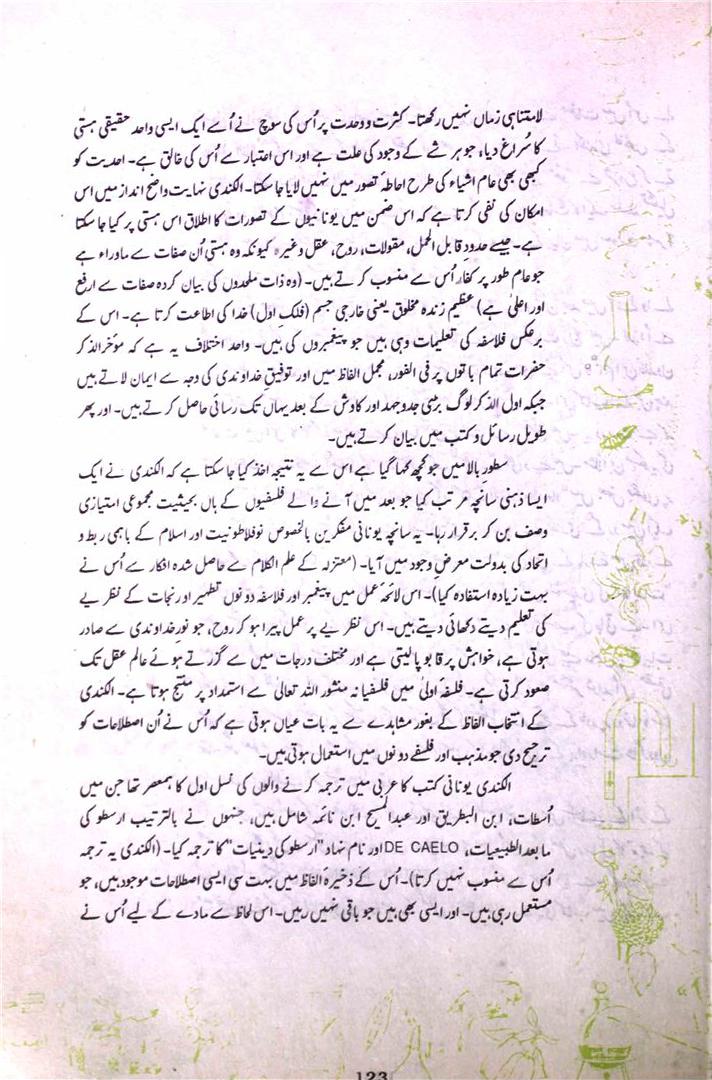 لامتناہی زماں نہیں رکھتا۔ کثرت و وحدت پر اُس کی سوچ نے اُسے ایک ایسی واحد حقیقی ہستی
کا سُراغ دیا، جو ہر شے کے وجود کی علت ہے اور اس اعتبار سے اُس کی خالق ہے۔ احدیت کو
کبھی بھی عام اشیاء کی طرح احاطۂ تصور میں نہیں لایا جا سکتا۔ الکندی نہایت واضح انداز میں اس
امکان کی نفی کرتا ہے کہ اس ضمن میں یونانیوں کے تصورات کا اطلاق اس ہستی پر کیا جا سکتا
ہے۔ جیسے حدودِ قابل الحمل، مقولات، روح، عقل وغیرہ کیونکہ وہ ہستی اُن صفات سے ماوراء ہے
جو عام طور پر کفار اُس سے منسوب کرتے ہیں۔ (وہ ذات ملحدوں کی بیان کردہ صفات سے ارفع
اور اعلیٰ ہے) عظیم زندہ مخلوق یعنی خارجی جسم (فلکِ اول) خدا کی اطاعت کرتا ہے۔ اس کے
برعکس فلاسفہ کی تعلیمات وہی ہیں جو پیغمبروں کی ہیں۔ واحد اختلاف یہ ہے کہ مؤخرالذکر
حضرات تمام باتوں پر فی الفور، مجمل الفاظ میں اور توفیقِ خداوندی کی وجہ سے ایمان لاتے ہیں
جبکہ اول الذکر لوگ بڑی جدوجہد اور کاوش کے بعد یہاں تک رسائی حاصل کرتے ہیں۔ اور پھر
طویل رسائل و کتب میں بیان کرتے ہیں۔
سطورِ بالا میں جو کچھ کہا گیا ہے اس سے یہ نتیجہ اخذ کیا جا سکتا ہے کہ الکندی نے ایک
ایسا ذہنی سانچہ مرتب کیا جو بعد میں آنے والے فلسفیوں کے ہاں بحیثیت مجموعی امتیازی
وصف بن کر برقرار رہا۔ یہ سانچہ یونانی مفکرین بالخصوص نوفلاطونیت اور اسلام کے باہمی ربط و
اتحاد کی بدولت معرضِ وجود میں آیا۔ (معتزلہ کے علم الکلام سے حاصل شدہ افکار سے اُس نے
بہت زیادہ استفادہ کیا)۔ اس لائحۂ عمل میں پیغمبر اور فلاسفہ دونوں تطہیر اور نجات کے نظریے
کی تعلیم دیتے دکھائی دیتے ہیں۔ اس نظریے پر عمل پیرا ہو کر روح، جو نورِ خداوندی سے صادر
ہوتی ہے، خواہش پر قابو پا لیتی ہے اور مختلف درجات میں سے گزرتے ہوئے عالمِ عقل تک
صعود کرتی ہے۔ فلسفۂ اولیٰ میں فلسفیانہ منشور اللہ تعالیٰ سے استمداد پر منتج ہوتا ہے۔ الکندی
کے انتخابِ الفاظ کے بغور مشاہدے سے یہ بات عیاں ہوتی ہے کہ اُس نے اُن اصطلاحات کو
ترجیح دی جو مذہب اور فلسفے دونوں میں استعمال ہوتی ہیں۔
الکندی یونانی کتب کا عربی میں ترجمہ کرنے والوں کی نسلِ اول کا ہمعصر تھا جن میں
اُسطات، ابن البطریق اور عبدالمسیح ابن نائمہ شامل ہیں، جنہوں نے بالترتیب ارسطو کی
مابعد الطبیعیات، DE CAELO اور نام نہاد "ارسطو کی دینیات" کا ترجمہ کیا۔ (الکندی یہ ترجمہ
اُس سے منسوب نہیں کرتا)۔ اُس کے ذخیرۂ الفاظ میں بہت سی ایسی اصطلاحات موجود ہیں، جو
مستعمل رہی ہیں۔ اور ایسی بھی ہیں جو باقی نہیں رہیں۔ اس لحاظ سے مادے کے لیے اُس نے
123